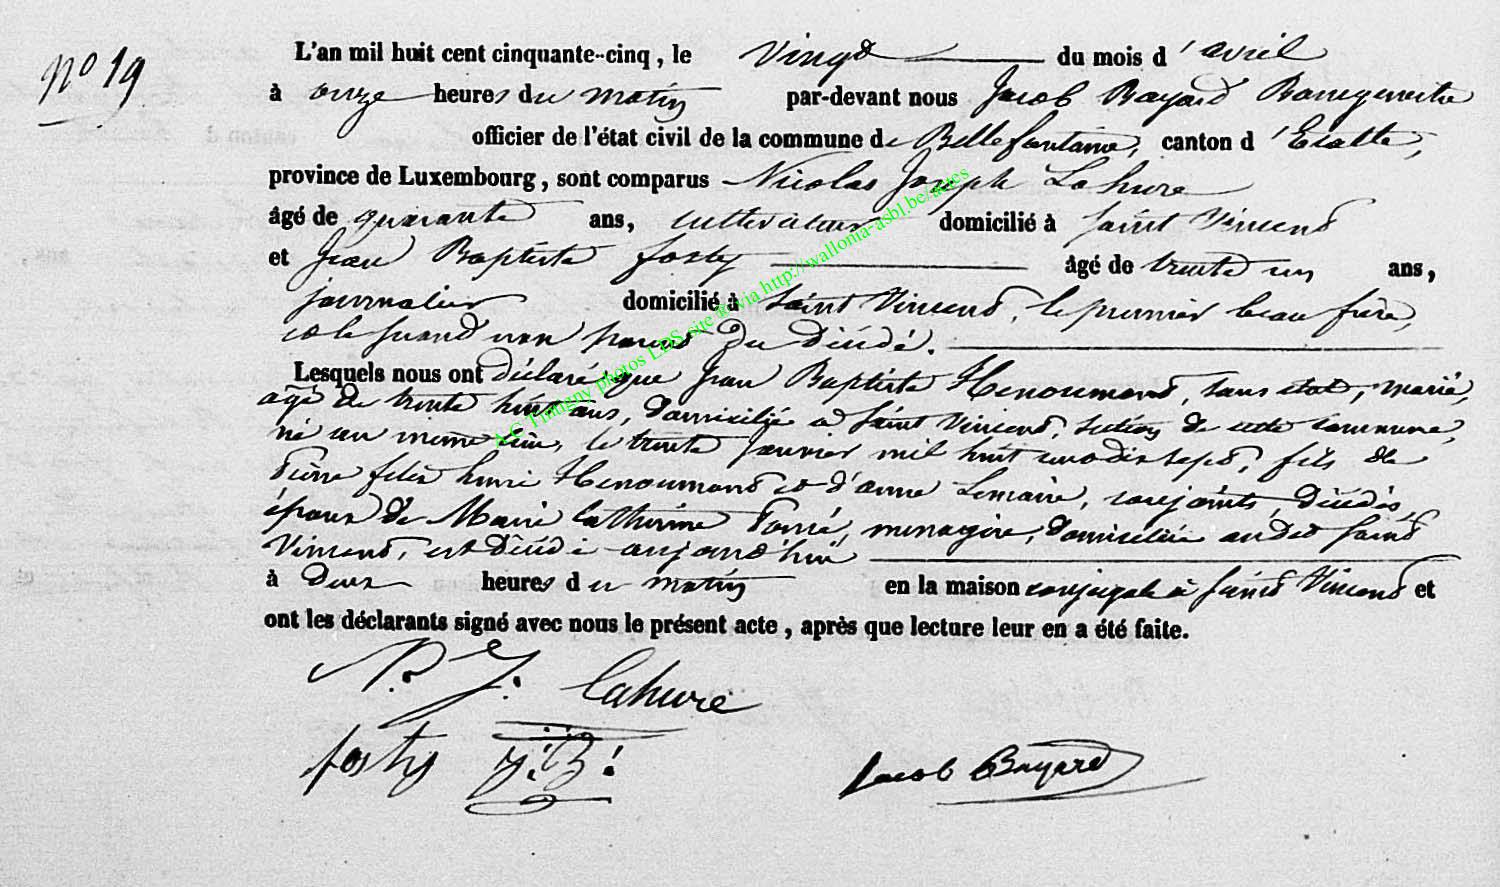 N° 19
L'an mil huit cent cinquante-cinq, le vingt du mois d'avril
à onze heures du matin par-devant nous Jacob Bayard Bourgmestre
officier de l'état civil de la commune de Bellefontaine, canton d'Etalle,
province de Luxembourg, sont comparus Nicolas Joseph Lahure
âgé de quarante ans, cultivateur domicilié à Saint Vincent
et Jean Baptiste Fosty âgé de trente un ans,
journalier domicilié à Saint Vincent, le premier beau frère,
et le second non parent du décédé.
Lesquels nous ont déclaré que Jean Baptiste Henoumont, sans état, marié,
âgé de trente huit ans, domicilié à Saint Vincent, section de cette commune,
né au même lieu, le trente Janvier mil huit cent dix sept, fils de
Pierre félix henri Henoumont et d'anne Lemaire, conjoints, décédés,
époux de Marie Catherine, ménagère, domiciliée audit Saint
Vincent, est décédé aujourd'hui
à deux heures du matin en la maison conjugale à Saint Vincent et
ont les déclarants signé avec nous le présent acte, après que lecture leur en a été faite.
N. J. Lahure
fosty J: B:
Jacob Bayard
A.G. Tintigny photos LDS site & via http://wallonia-asbl.be/actes